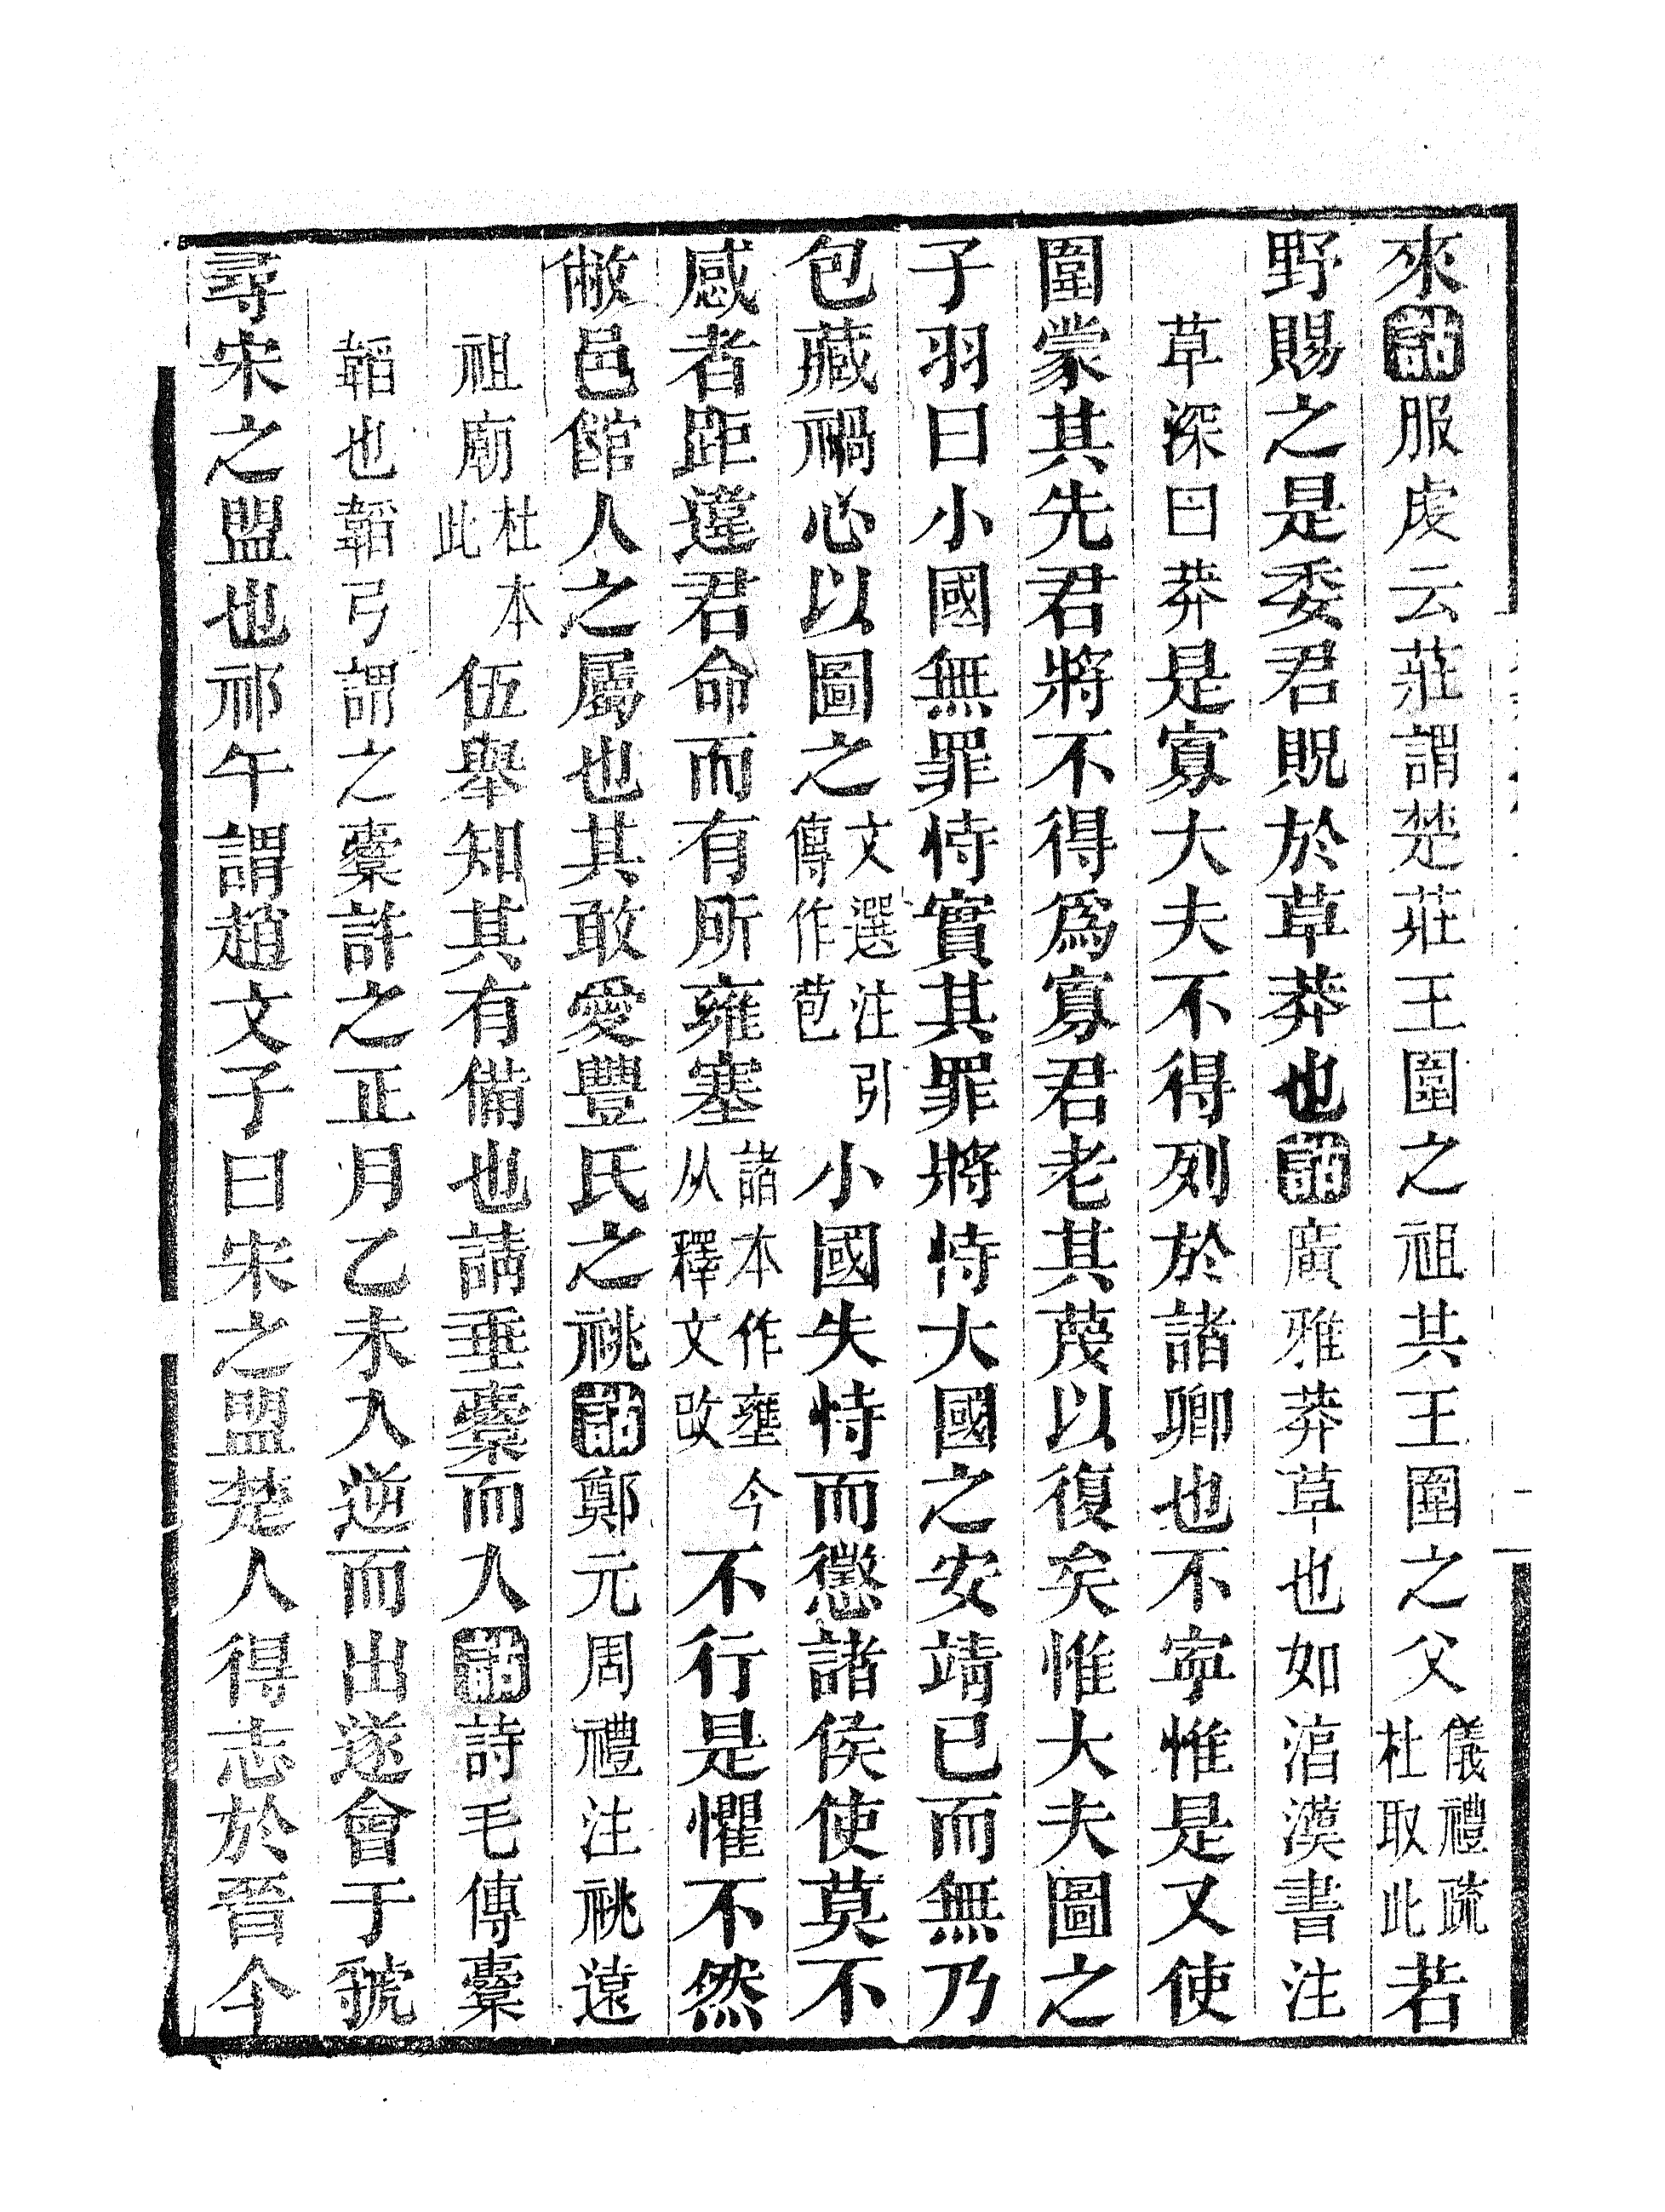 來詁服虔云莊謂楚莊王圍之祖共王圍之父儀禮疏杜取此若
野賜之是委君貺於草莽也詁廣雅莽草也如淳漢書注
草深曰莽是寡大夫不得列於諸卿也不寧惟是又使
圍蒙其先君將不得爲寡君老其蔑以復矣惟大夫圖之
子羽曰小國無罪恃實其罪將恃大國之安靖已而無乃
包藏禍心以圖之文選注引傳作苞小國失恃而懲諸侯使莫不
感者距違君命而有所雍塞諸本作壅今从釋文改不行是懼不然
敝邑館人之屬也其敢愛豐氏之祧詁鄭元周禮注祧遠
祖廟杜本此伍舉知其有備也請垂櫜而入詁詩毛傳櫜
韜也韜弓謂之櫜許之正月乙未入逆而出遂會于虢
尋宋之盟也祁午謂趙文子曰宋之盟楚人得志於晉今